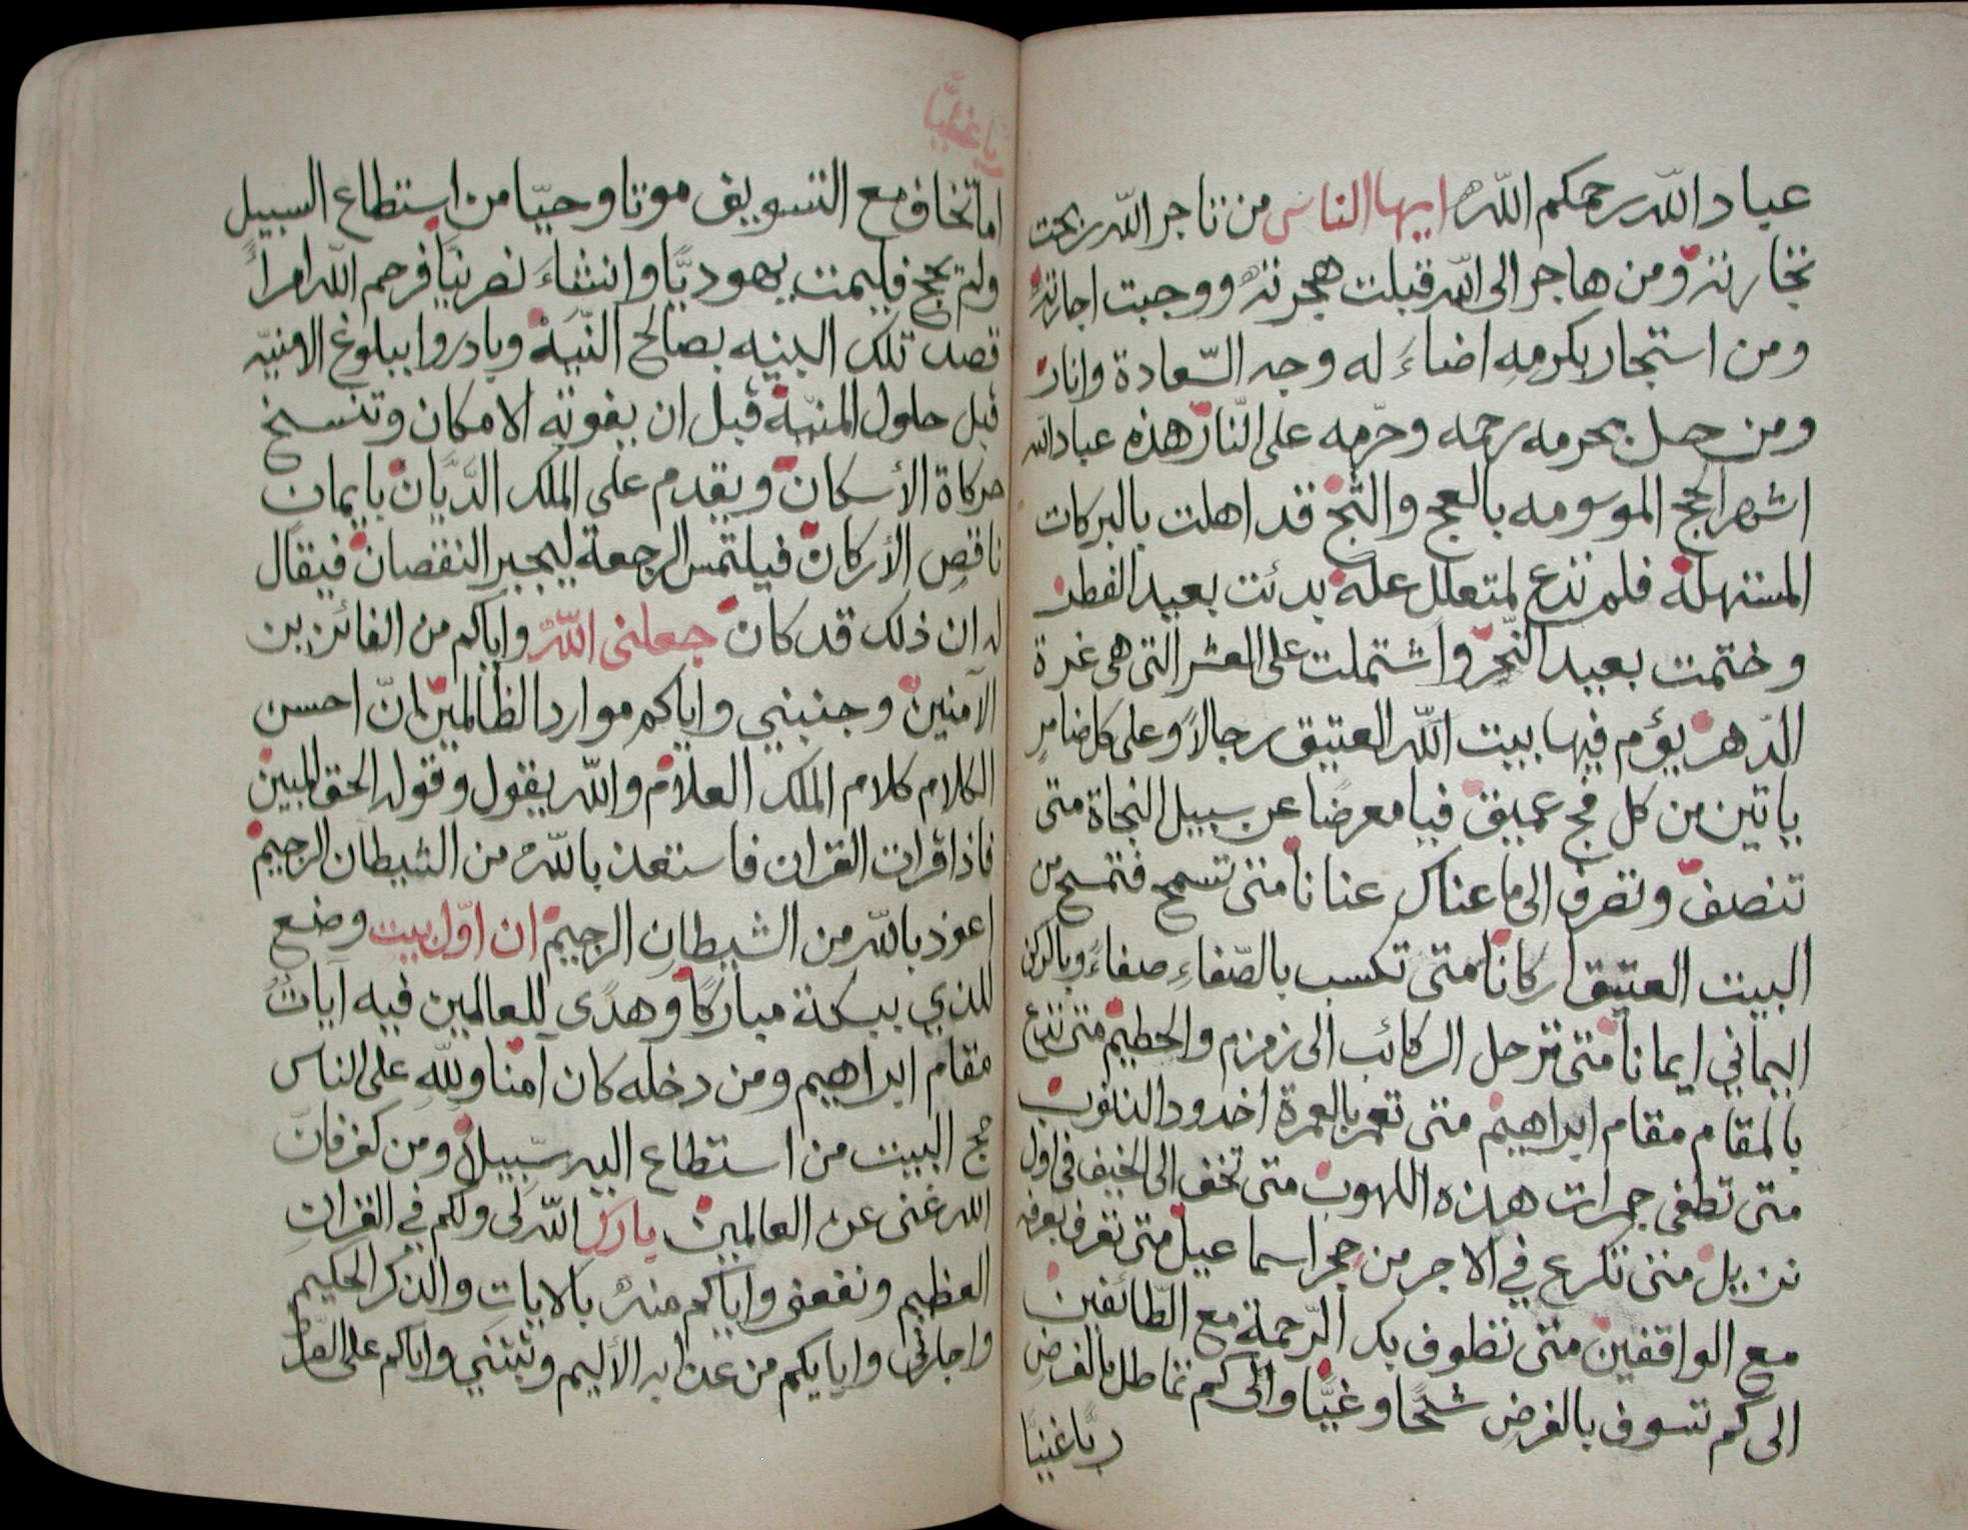 عباد الله رحمكم الله ايها الناس من تاجر الله ربحت
تجارته ومن هاجر الى الله قبلت هجرته ووجبت اجارته
ومن استجار بكرمه اضاءَ له وجه السّعادة وانار
ومن حصل بحرمه رحمه وحرّمه على النّار هذه عباد الله
اشهر الحج الموسومه بالعج والثج قد اهلت بالبركات
المستهلة فلم تدع لمتعلل علة بدئت بعيد الفطر
وختمت بعيد النّحر واشتملت على العشر التى هى غرة
الدّهر يؤم فيها بيت الله العتيق رجالاً وعلى كل ضامرٍ
ياتين من كل فج عميق فيا معرضًا عن سبيل النجاة متى
تنصف وتصرف الى ما عناك عنانا متى تسمح فتمسح من
البيت العتيق اركانا متى تكسب بالصّفاءِ صفاءً وبالركن
اليماني ايمانا متى ترحل الركائب الى زمزم والحطيم متى تدع
بالمقام مقام ابراهيم متى تعمر بالعمرة اخدود الذنوب
متى تطفى جمرات هذه اللهوب متى تخف الى الخيف فى اول
نزيل متى تكرع في الاجر من حجر اسماعيل متى تعرف بعرفه
مع الواقفين متى تطوف بك الرّحمة مع الطّائفين
الى كم تسوف بالفرض شحًّا وغيًّا والى كم تماطل بالفرض
ربًّا غنيًّا
ربا غنيًّا
اما تخاف مع التسويف موتا وحيّا من استطاع السبيل
ولم يحج فليمت يهوديًّا وان شاءَ نصرنيًّا فرحم الله امرأً
قصد تلك البنيه بصالح النّيّة وبادروا ببلوغ الامنيّه
قبل حلول المنيّة قبل ان يفوته الامكان وتنسخ
حركاة الأسكان ويقدم على الملك الدَّيَّان بايمان
ناقصِ الأركان فيلتمس الرجعة ليجبر النقصان فيقال
له ان ذلك قد كان جعلنى الله واياكم من الفائزين
الآمنين وجنبني واياكم موارد الظالمين انّ احسن
الكلام كلام الملك العلام والله يقول وقوله الحق المبين
فاذا قرات القران فاستعذ بالله من الشيطان الرجيم
اعوذ بالله من الشيطانِ الرجيم ان اوّل بيت وضع
للذي ببكة مباركًا وهدًى للعالمين فيه آياتٌ
مقام ابراهيم ومن دخله كان آمنا وللهِ على الناس
حج البيت من استطاع اليه سّبيلاً ومن كفر فانّ
الله غنى عن العالمين بارك الله لى ولكم في القرانِ
العظيم ونفعنى واياكم منه بالاياتِ والذكر الحكيم
واجارنى واياكم من عذابه الأليم وثبتني واياكم على